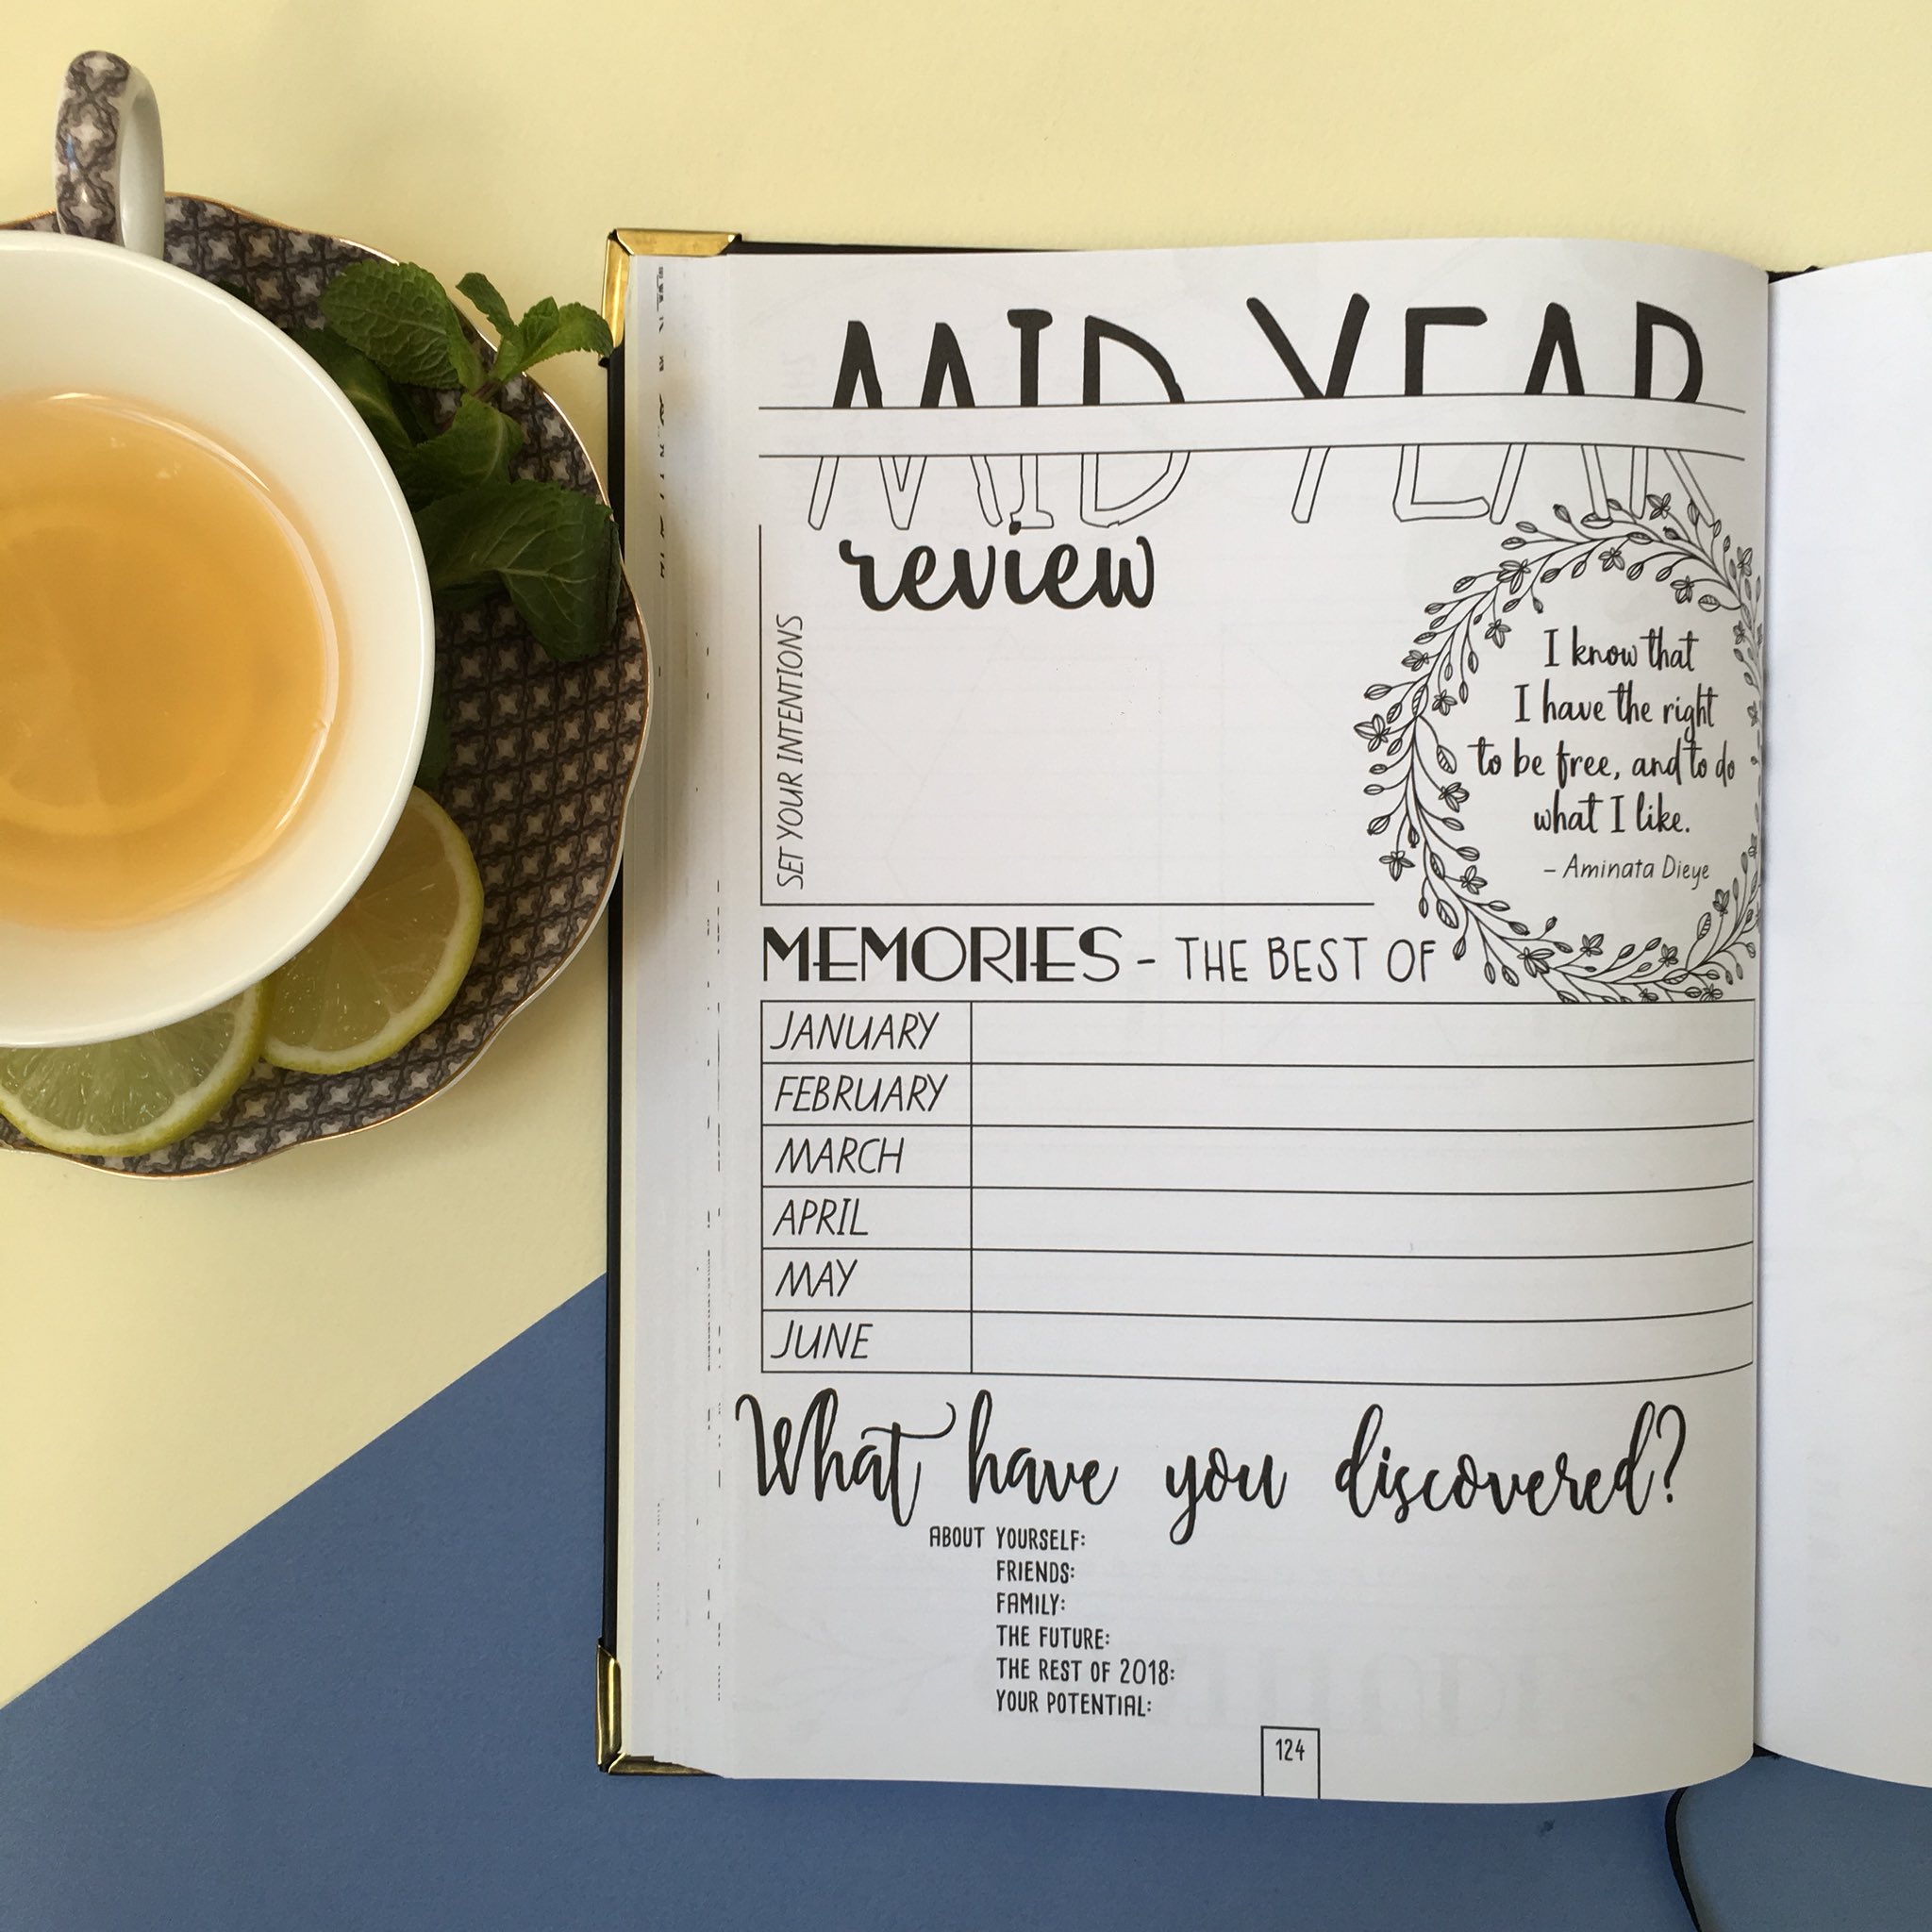 MID YEAR
review
SET YOUR INTENTIONS
I know that
I have the right
to be free, and to do
what I like.
– Aminata Dieye
MEMORIES - THE BEST OF
JANUARY
FEBRUARY
MARCH
APRIL
MAY
JUNE
What have you discovered?
ABOUT YOURSELF:
FRIENDS:
FAMILY:
THE FUTURE:
THE REST OF 2018:
YOUR POTENTIAL:
124